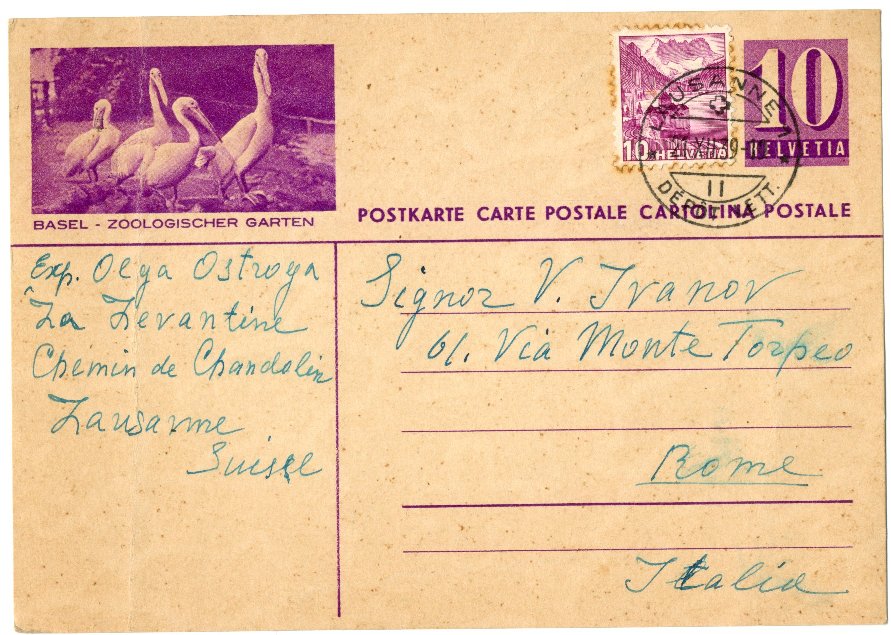 BASEL - ZOOLOGISCHER GARTEN
10
HELVETIA
10
HELVETIA
LAUSANNE 1
II
DÉPÔT LETT.
POSTKARTE CARTE POSTALE CARTOLINA POSTALE
Exp. Olga Ostroga
La Levantine
Chemin de Chandolin
Lausanne
Suisse
Signor V. Ivanov
61. Via Monte Torpeo
Rome
Italia